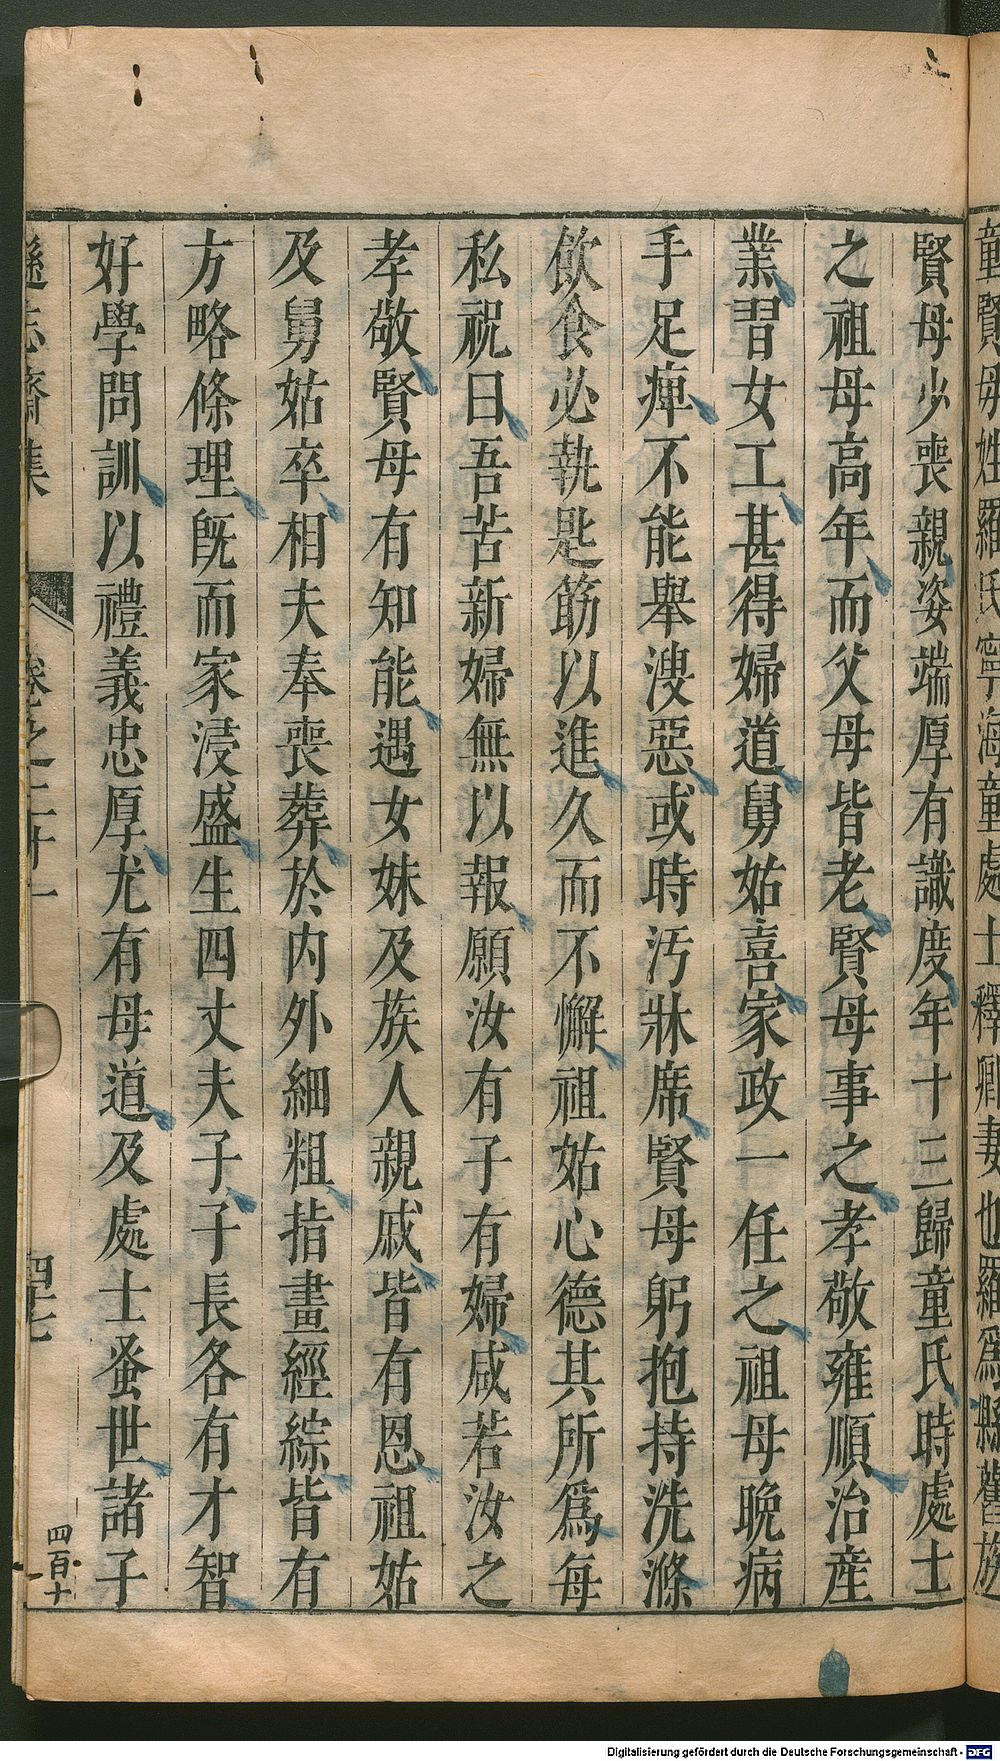 童賢母姓羅氏寧海童處士釋卿妻也羅爲縣舊族
賢母少喪親姿端厚有識度年十三歸童氏時處士
之祖母高年而父母皆老賢母事之孝敬雍順治産
業習女工甚得婦道舅姑喜家政一任之祖母晩病
手足痺不能舉溲惡或時汚牀席賢母躬抱持洗滌
飲食必執匙筯以進久而不懈祖姑心德其所爲每
私祝曰吾苦新婦無以報願汝有子有婦咸若汝之
孝敬賢母有知能遇女妹及族人親戚皆有恩祖姑
及舅姑卒相夫奉喪葬於内外細粗指畫經綜皆有
方略條理旣而家浸盛生四丈夫子子長各有才智
好學問訓以禮義忠厚尤有母道及處士蚤世諸子
遜志齋集 卷之二十一 四七 四百十
Digitalisierung gefördert durch die Deutsche Forschungsgemeinschaft - DFG